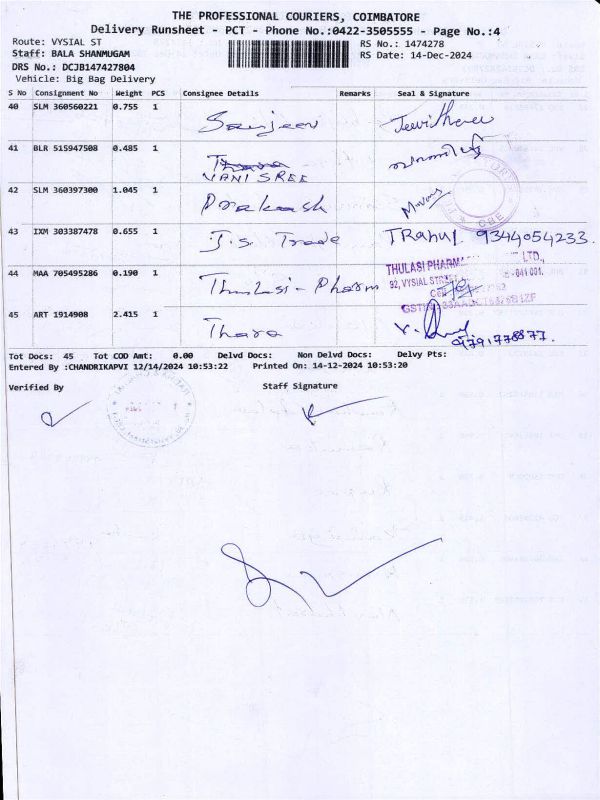 THE PROFESSIONAL COURIERS, COIMBATORE
Delivery Runsheet - PCT - Phone No.:0422-3505555 - Page No.:4
Route: VYSIAL ST RS No.: 1474278
Staff: BALA SHANMUGAM RS Date: 14-Dec-2024
DRS No.: DCJB147427804
Vehicle: Big Bag Delivery
S No Consignment No Weight PCS Consignee Details Remarks Seal & Signature
40 SLM 360560221 0.755 1 Sanjeev
41 BLR 515947508 0.485 1 Thara
VANI SREE
42 SLM 360397300 1.045 1 Prakash
43 IXM 303387478 0.655 1 J.S. Trade TRahul 9344054233.
44 MAA 705495286 0.190 1 Thulasi-Pharm THULASI PHARMA LTD.,
92, VYSIAL STREET - 641 001.
45 ART 1914908 2.415 1 Thara 9791778877.
Tot Docs: 45 Tot COD Amt: 0.00 Delvd Docs: Non Delvd Docs: Delvy Pts:
Entered By :CHANDRIKAPVI 12/14/2024 10:53:22 Printed On: 14-12-2024 10:53:20
Verified By Staff Signature